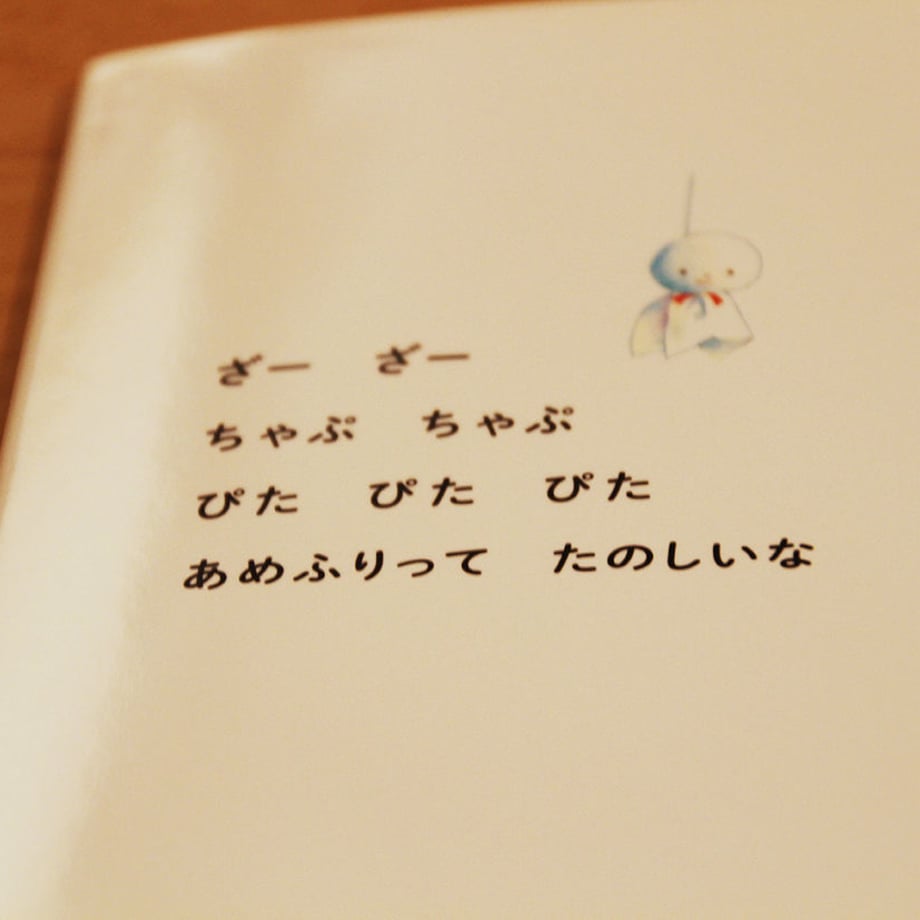 ざー　ざー
ちゃぷ　ちゃぷ
ぴた　ぴた　ぴた
あめふりって　たのしいな